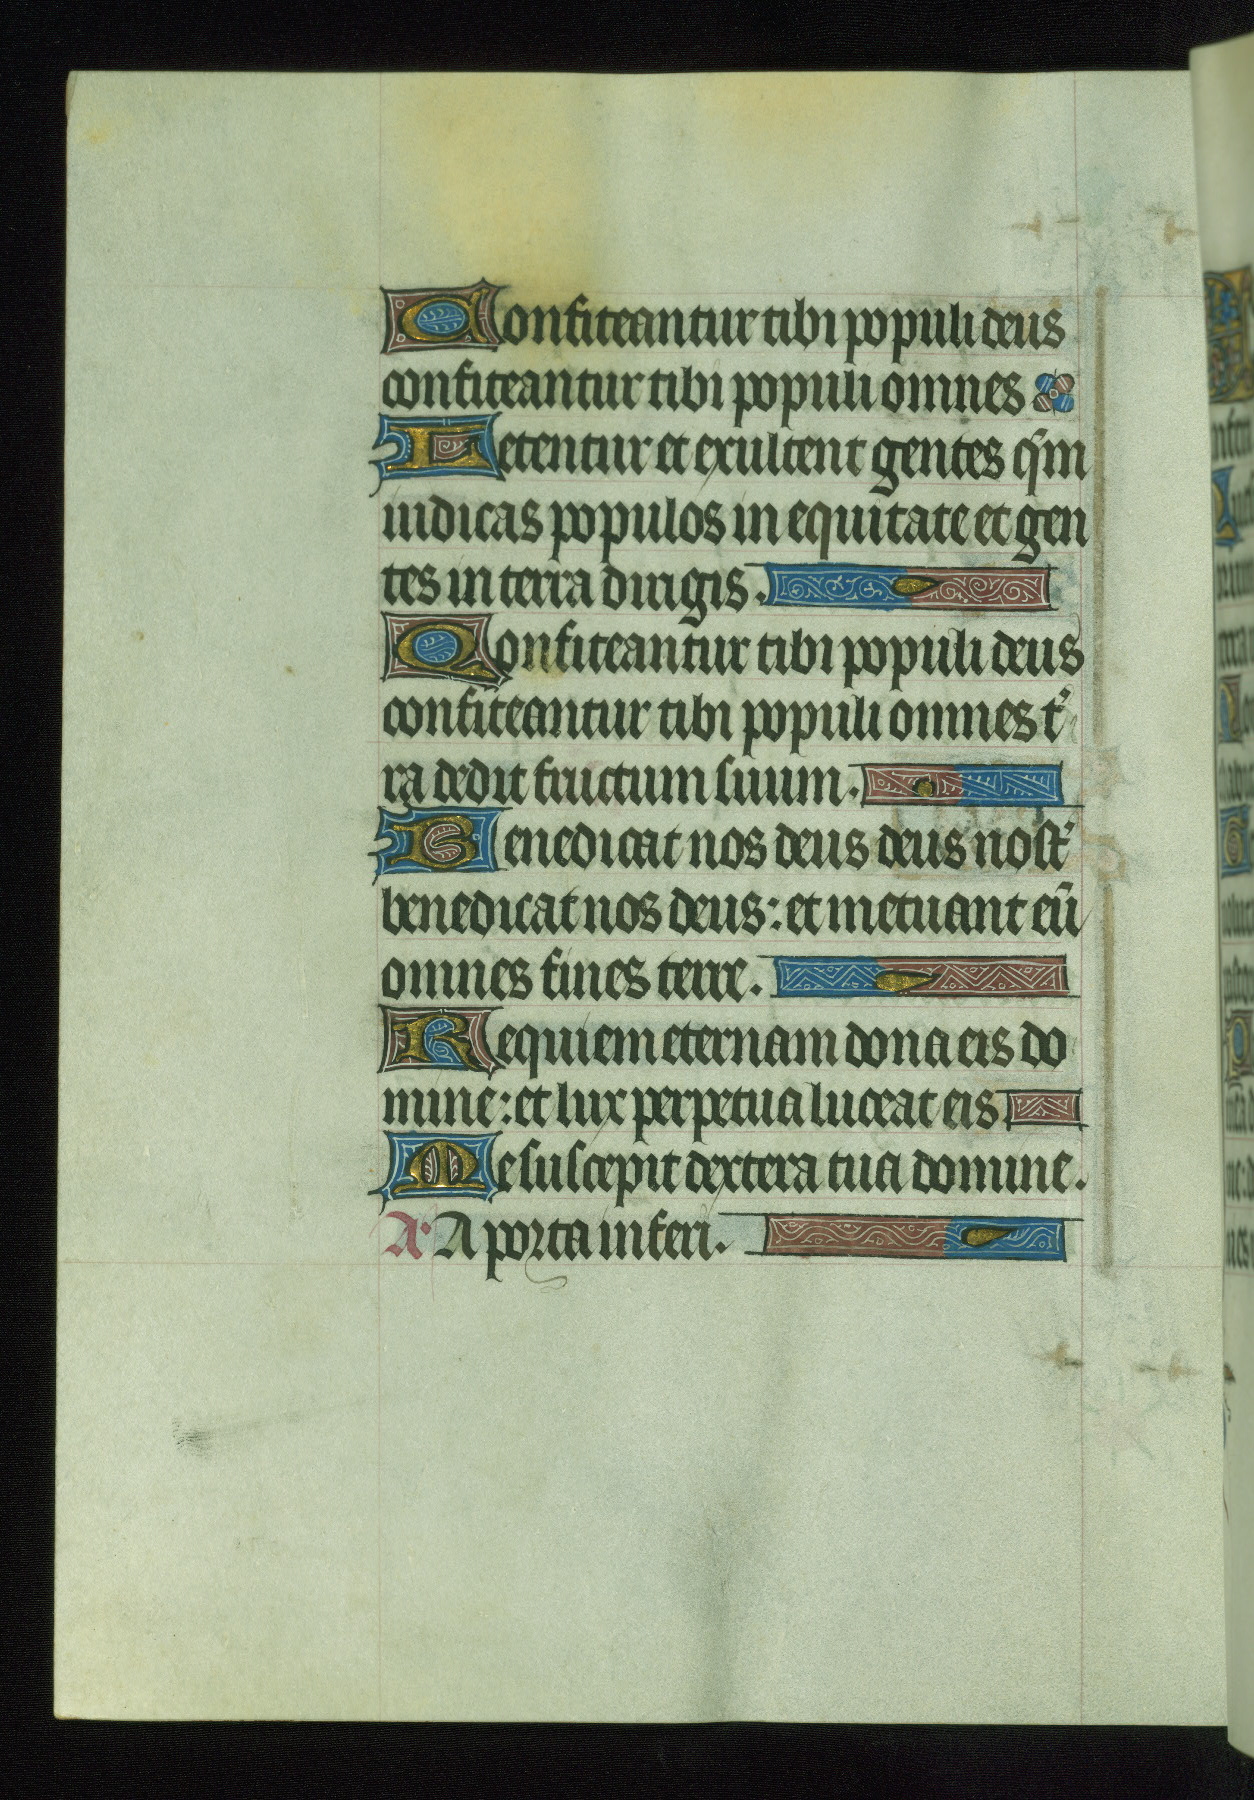 Confiteantur tibi populi deus
confiteantur tibi populi omnes
Letentur et exultent gentes qm̄
iudicas populos in equitate et gen
tes in terra dirigis.
Confiteantur tibi populi deus
confiteantur tibi populi omnes t᾽
ra dedit fructum suum.
Benedicat nos deus deus nost᾽
benedicat nos deus: et metuant eū
omnes fines terre.
Requiem eternam dona eis do
mine: et lux perpetua luceat eis
Me suscepit dextera tua domine.
A᾽ A porta inferi.